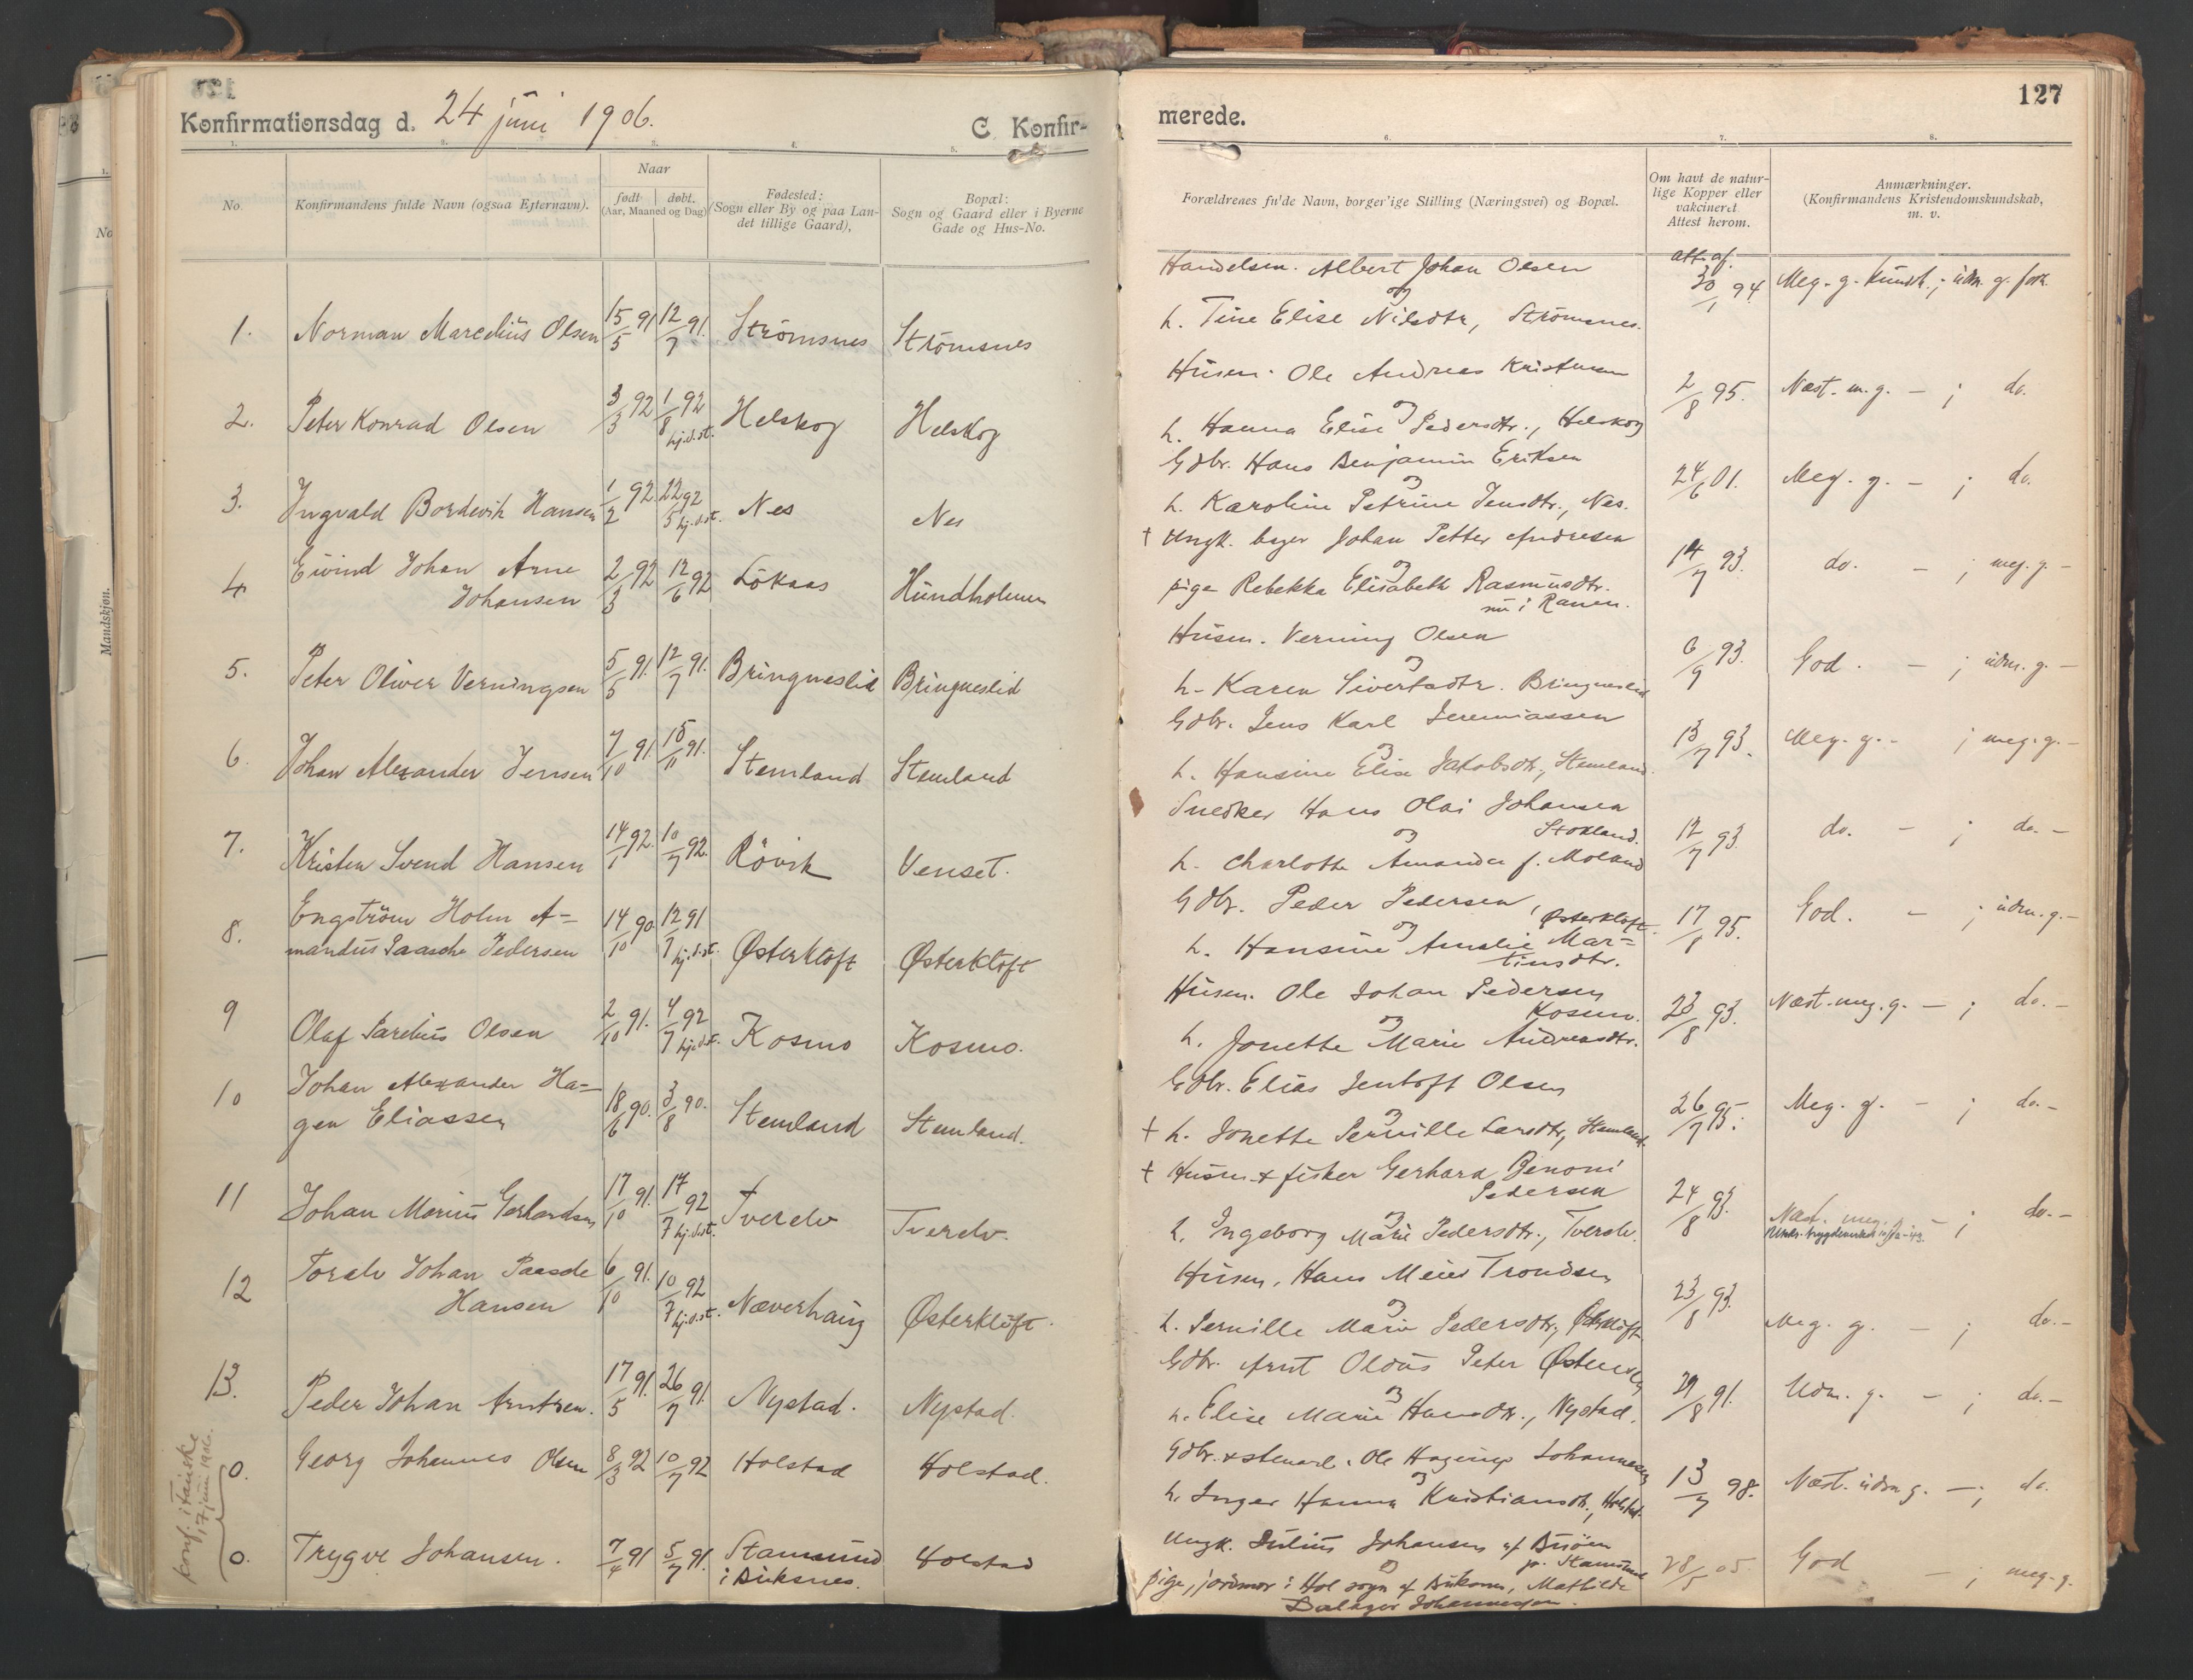 Konfirmationsdag d. 24 juni 1906.
C. Konfir-
merede.
127
1. 2. 3. 4. 5. 6. 7. 8.
No.
Konfirmandens fulde Navn (ogsaa Efternavn).
Naar
født døbt.
(Aar, Maaned og Dag)
Fødested:
(Sogn eller By og paa Lan-
det tillige Gaard),
Bopæl:
Sogn og Gaard eller i Byerne
Gade og Hus-No.
Forældrenes fulde Navn, borgerlige Stilling (Næringsvei) og Bopæl.
Om havt de natur-
lige Kopper eller
vakcineret
Attest herom.
Anmærkninger.
(Konfirmandens Kristendomskundskab,
m. v.
1. Norman Marcelius Olsen 15/5 91 12/7 91. Strömsnes Strömsnes
Handelsm. Albert Johan Olsen
og
h. Tine Elise Nilsdtr, Strömsnes.
att. af.
30/1 94 Meg. g. kundk.; udm. g. forh.
2. Peter Konrad Olsen 3/3 92 1/8 92 hj.d.st. Helskog Helskog
Husm. Ole Andreas Kristensen
og
h. Hanna Elise Pedersdtr., Helskog
2/8 95. Næst. m. g. — ; do.
3. Ingvald Bordevik Hansen 1/2 92. 22/5 92 hj.d.st. Nes Nes
Gdbr. Hans Benjamin Eriksen
og
h. Karoline Petrine Jensdtr., Nes.
24/6 01. Meg. g. — ; do.
4 Eivind Johan Arne
Johansen 2/3 92 12/6 92 Lökaas Hundholmen
† Ungk. bager Johan Petter Andresen
og
pige Rebekka Elisabeth Rasmusdtr.
nu i Ranen.
14/7 93. do. — ; meg. g. —
5. Peter Oliver Verningsen 5/5 91. 12/7 91. Bringneslid Bringneslid
Husm. Verning Olsen
og
h. Karen Sivertsdtr. Bringneslid
6/9 93. God. — ; udm. g. —
6 Johan Alexander Jensen 7/10 91. 15/11 91. Stemland Stemland
Gdbr. Jens Karl Jeremiassen
og
h. Hansine Elise Jakobsdtr, Stemland.
13/7 93. Meg. g. - ; meg. g. —
7. Kristen Svend Hansen 14/1 92. 10/7 92. Rövik Venset.
Snedker Hans Olai Johansen
og Stokland.
h. Charlotte Amanda f. Moland
12/7 93. do. — ; do. —
8. Engström Holm A=
mandus Paasche Pedersen 14/10 90. 12/7 91 hj.d.st. Østerkløft Østerkløft
Gdbr. Peder Pedersen,
og Østerkløft.
h. Hansine Amalie Mar=
tinsdtr.
17/8 95. God. — ; udm. g. —
9 Olaf Parelius Olsen 2/10 91. 4/7 92 hj.d.st. Kosmo Kosmo.
Husm. Ole Johan Pedersen
og Kosmo.
h. Jonette Marie Andreasdtr.
23/8 93. Næst. meg. g. — ; do. —
10 Johan Alexander Ha=
gen Eliassen 18/6 90. 3/8 90. Stemland Stemland.
Gdbr. Elias Jentoft Olsen
og
† h. Jonette Pernille Larsdtr, Stemland.
26/7 95. Meg. g. — ; do. —
11 Johan Marius Gerhardsen 17/10 91. 17/7 92 hj.d.st. Tverelv Tverelv.
† Husm. & fisker Gerhard Benoni
Pedersen
og
h. Ingeborg Marie Pedersdtr., Tverelv.
24/8 93. Næst. meg. g. — ; do. —
12 Toralv Johan Paasche
Hansen 6/10 91. 10/7 92 hj.d.st. Næverhaug Østerkløft.
Husm. Hans Meier Trondsen
og
h. Pernille Marie Pedersdtr, Østerkløft
23/8 93. Meg. g. — ; do. —
13. Peder Johan Arntsen. 17/5 91. 26/7 91. Nystad. Nystad.
Gdbr. Arnt Oldus Peter Østensen
og
h. Elise Marie Hansdtr., Nystad.
29/8 91. Udm. g. — ; do. —
konf. i Fauske
17 juni 1906.
0. Georg Johannes Olsen 8/3 92 10/7 92 Holstad Holstad.
Gdbr. & stenarb. Ole Hagerup Johannesen
og
h. Inger Hanna Kristiansdtr, Holstad.
13/7 98. Næst. udm g. — ; do.
0. Trygve Johansen. 7/4 91 5/7 91. Stamsund
i Buksnes. Holstad
Ungk. Julius Johansen af
og Stamsund
pige, jordmor i Hol sogn af Buksnes, Mathilde
Dalager Johannessen.
28/5 05. God — ; meg. g.
Mandskjøn.